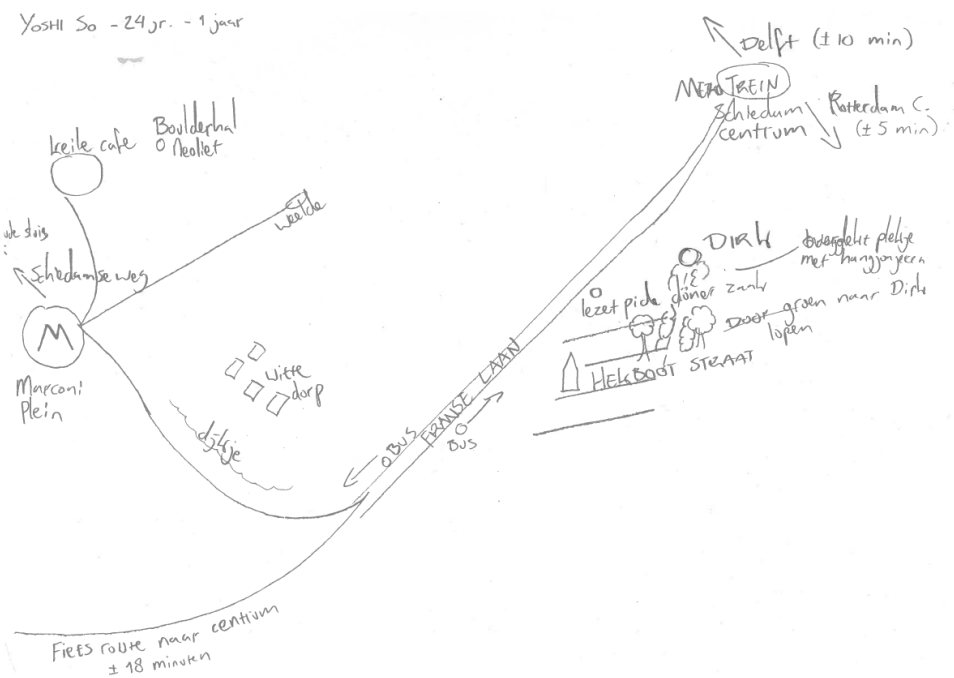 YOSHI So - 24 jr. - 1 jaar
Delft (± 10 min)
TREIN
Schiedam
centrum
Rotterdam C.
(± 5 min)
keile cafe
Boulderhal
Neoliet
weelde
Schiedamseweg
M
Marconi
Plein
witte
dorp
dijkje
BUS
FRANSE LAAN
BUS
DIRK
overdekt plekje
met hangjongeren
lezet pide döner zaak
Door groen naar Dirk
lopen
HEKBOOT STRAAT
Fiets route naar centrum
± 18 minuten